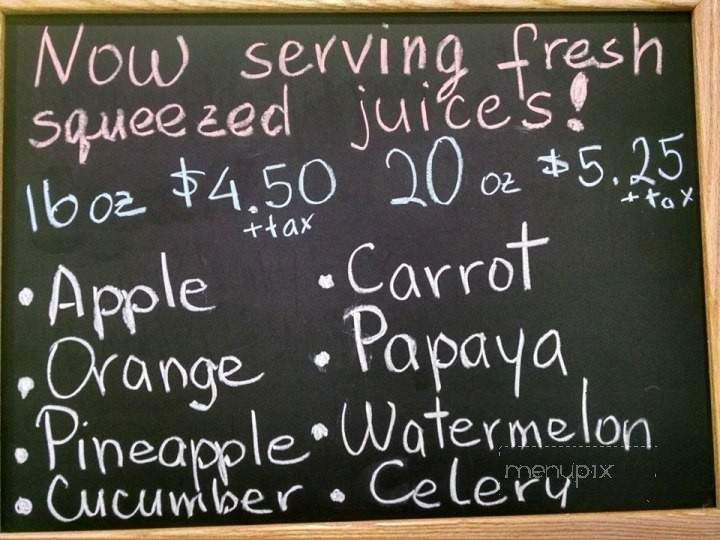 Now serving fresh
squeezed juices!
16 oz $4.50 20 oz $5.25
+tax +tax
• Apple • Carrot
• Orange • Papaya
• Pineapple • Watermelon
menupix
• Cucumber • Celery